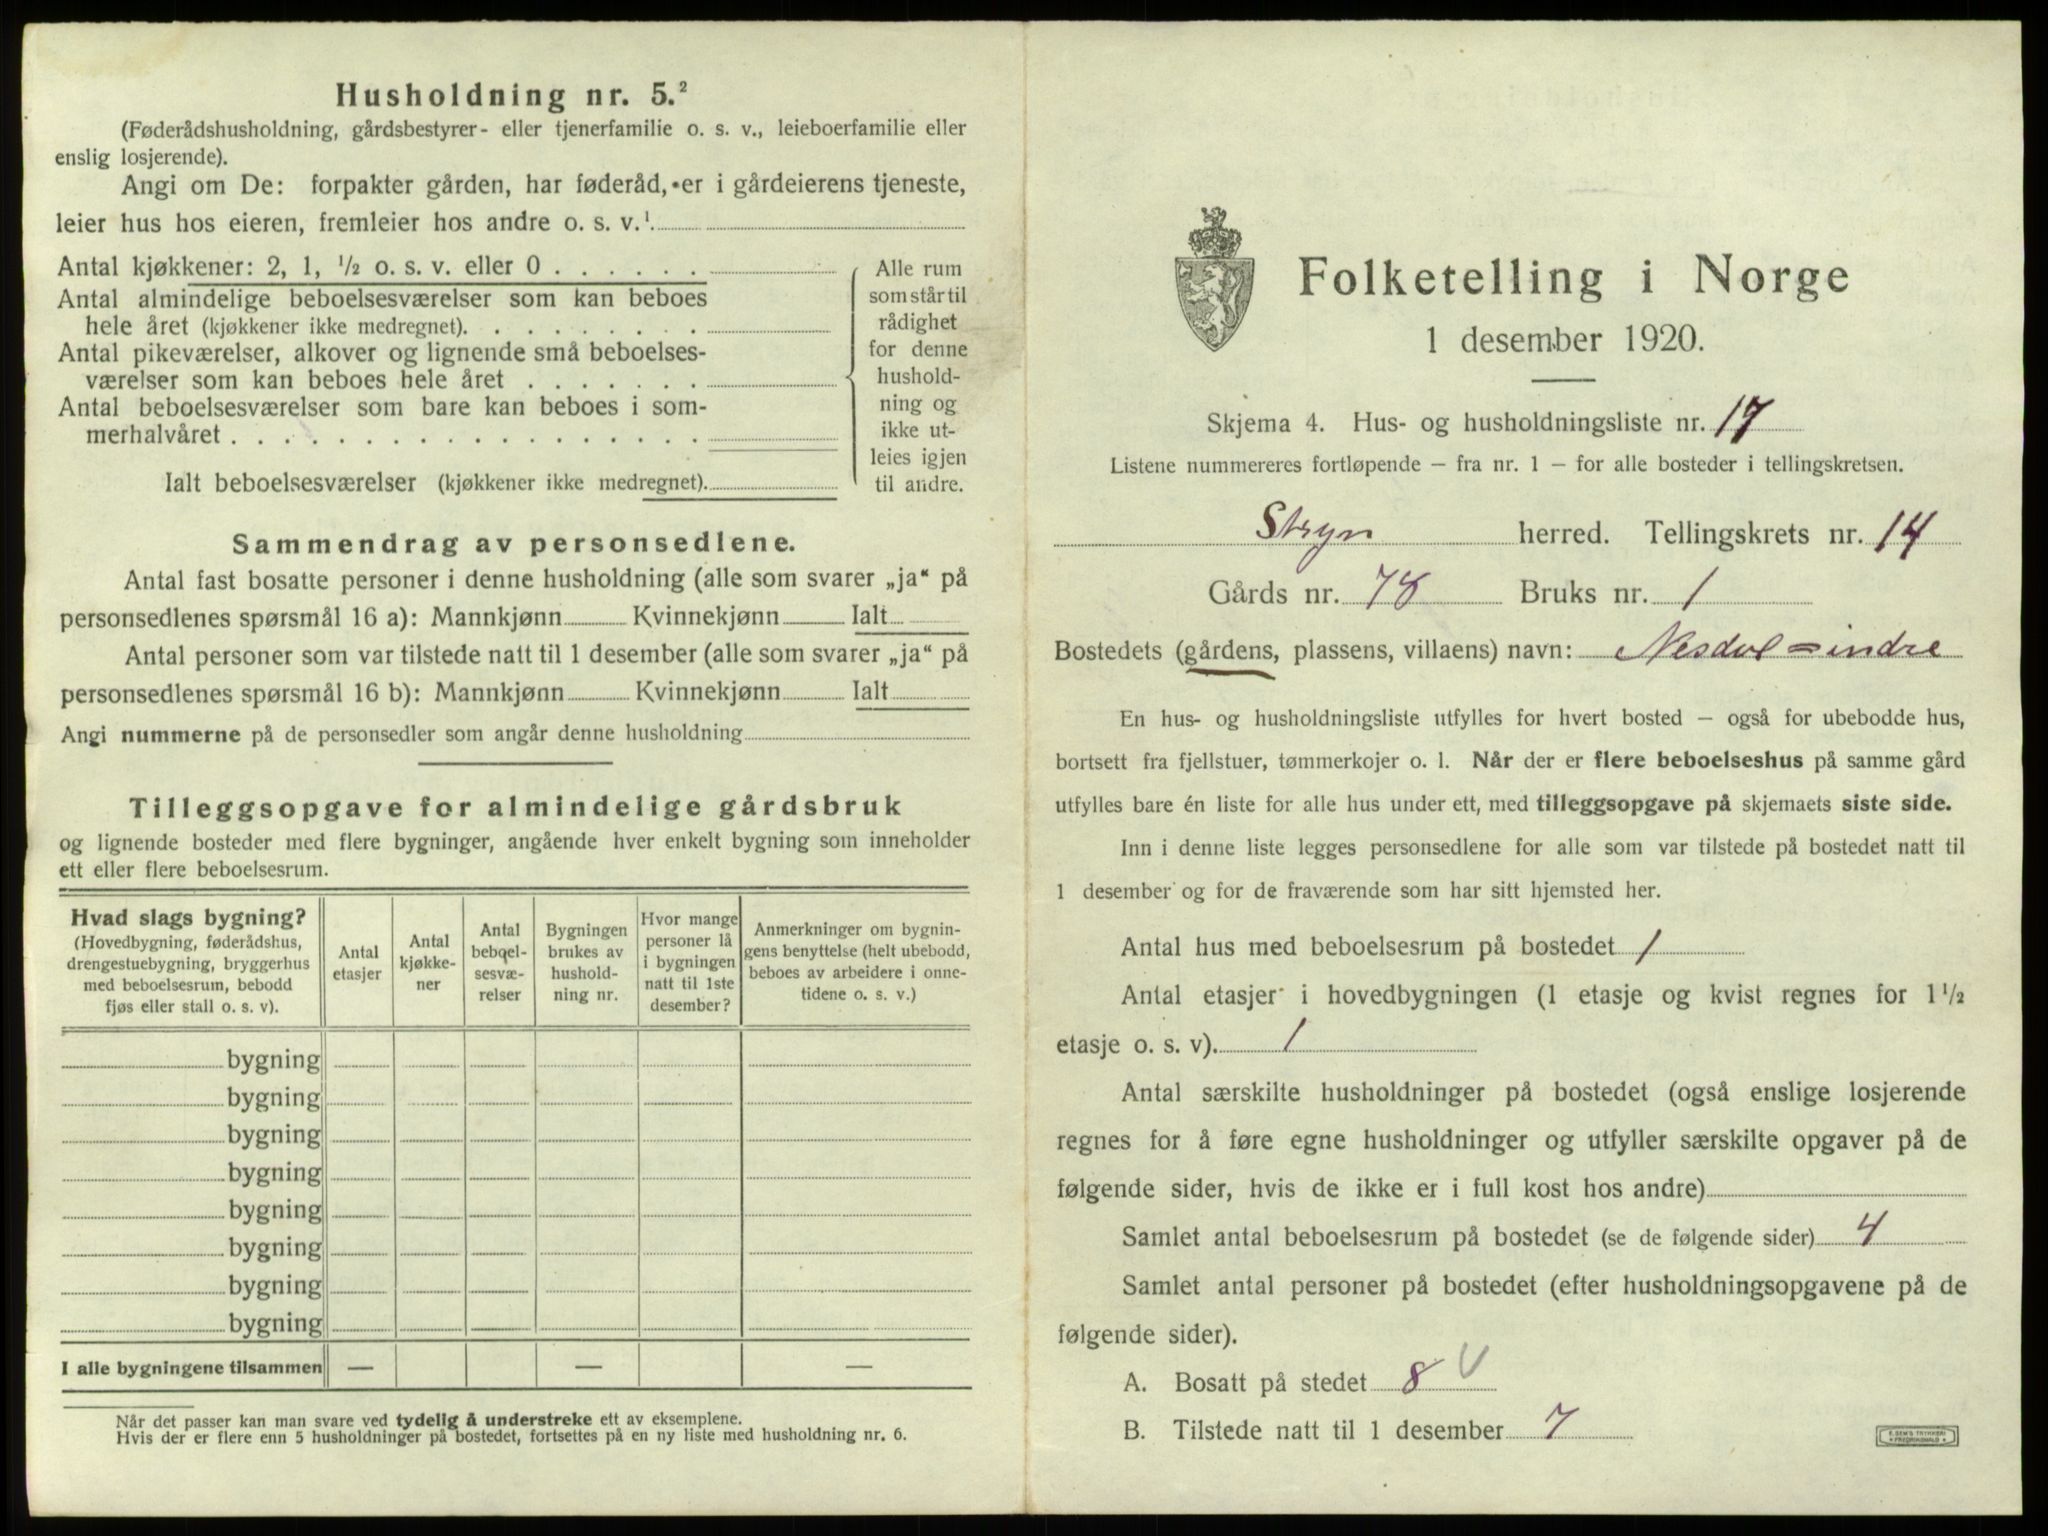 Husholdning nr. 5.²
(Føderådshusholdning, gårdsbestyrer- eller tjenerfamilie o. s. v., leieboerfamilie eller
enslig losjerende).
Angi om De: forpakter gården, har føderåd, er i gårdeierens tjeneste,
leier hus hos eieren, fremleier hos andre o. s. v.¹
Antal kjøkkener: 2, 1, ½ o. s. v. eller 0 . . . . . .
Antal almindelige beboelsesværelser som kan beboes
hele året (kjøkkener ikke medregnet). . . . . . . . .
Antal pikeværelser, alkover og lignende små beboelses-
værelser som kan beboes hele året . . . . . . .
Antal beboelsesværelser som bare kan beboes i som-
merhalvåret . . . . . . . . . . . . . . . . . .
Ialt beboelsesværelser (kjøkkener ikke medregnet).
Alle rum
som står til
rådighet
for denne
hushold-
ning og
ikke ut-
leies igjen
til andre.
Sammendrag av personsedlene.
Antal fast bosatte personer i denne husholdning (alle som svarer „ja“ på
personsedlenes spørsmål 16 a): Mannkjønn Kvinnekjønn Ialt
Antal personer som var tilstede natt til 1 desember (alle som svarer „ja“ på
personsedlenes spørsmål 16 b): Mannkjønn Kvinnekjønn Ialt
Angi nummerne på de personsedler som angår denne husholdning
Tilleggsopgave for almindelige gårdsbruk
og lignende bosteder med flere bygninger, angående hver enkelt bygning som inneholder
ett eller flere beboelsesrum.
Hvad slags bygning?
(Hovedbygning, føderådshus,
drengestuebygning, bryggerhus
med beboelsesrum, bebodd
fjøs eller stall o. s. v).
Antal
etasjer
Antal
kjøkke-
ner
Antal
beboel-
sesvæ-
relser
Bygningen
brukes av
hushold-
ning nr.
Hvor mange
personer lå
i bygningen
natt til 1ste
desember?
Anmerkninger om bygnin-
gens benyttelse (helt ubebodd,
beboes av arbeidere i onne-
tidene o. s. v.)
bygning
bygning
bygning
bygning
bygning
bygning
bygning
bygning
I alle bygningene tilsammen — — —
Når det passer kan man svare ved tydelig å understreke ett av eksemplene.
Hvis der er flere enn 5 husholdninger på bostedet, fortsettes på en ny liste med husholdning nr. 6.
Folketelling i Norge
1 desember 1920.
Skjema 4. Hus- og husholdningsliste nr. 17
Listene nummereres fortløpende – fra nr. 1 – for alle bosteder i tellingskretsen.
Stryn herred. Tellingskrets nr. 14
Gårds nr. 78 Bruks nr. 1
Bostedets (gårdens, plassens, villaens) navn: Nesdal = indre
En hus- og husholdningsliste utfylles for hvert bosted – også for ubebodde hus,
bortsett fra fjellstuer, tømmerkojer o. l. Når der er flere beboelseshus på samme gård
utfylles bare én liste for alle hus under ett, med tilleggsopgave på skjemaets siste side.
Inn i denne liste legges personsedlene for alle som var tilstede på bostedet natt til
1 desember og for de fraværende som har sitt hjemsted her.
Antal hus med beboelsesrum på bostedet 1
Antal etasjer i hovedbygningen (1 etasje og kvist regnes for 1 ½
etasje o. s. v). 1
Antal særskilte husholdninger på bostedet (også enslige losjerende
regnes for å føre egne husholdninger og utfyller særskilte opgaver på de
følgende sider, hvis de ikke er i full kost hos andre)
Samlet antal beboelsesrum på bostedet (se de følgende sider) 4
Samlet antal personer på bostedet (efter husholdningsopgavene på de
følgende sider).
A. Bosatt på stedet 8 V
B. Tilstede natt til 1 desember 7
E. SEM'S TRYKKERI
FREDRIKSHALD